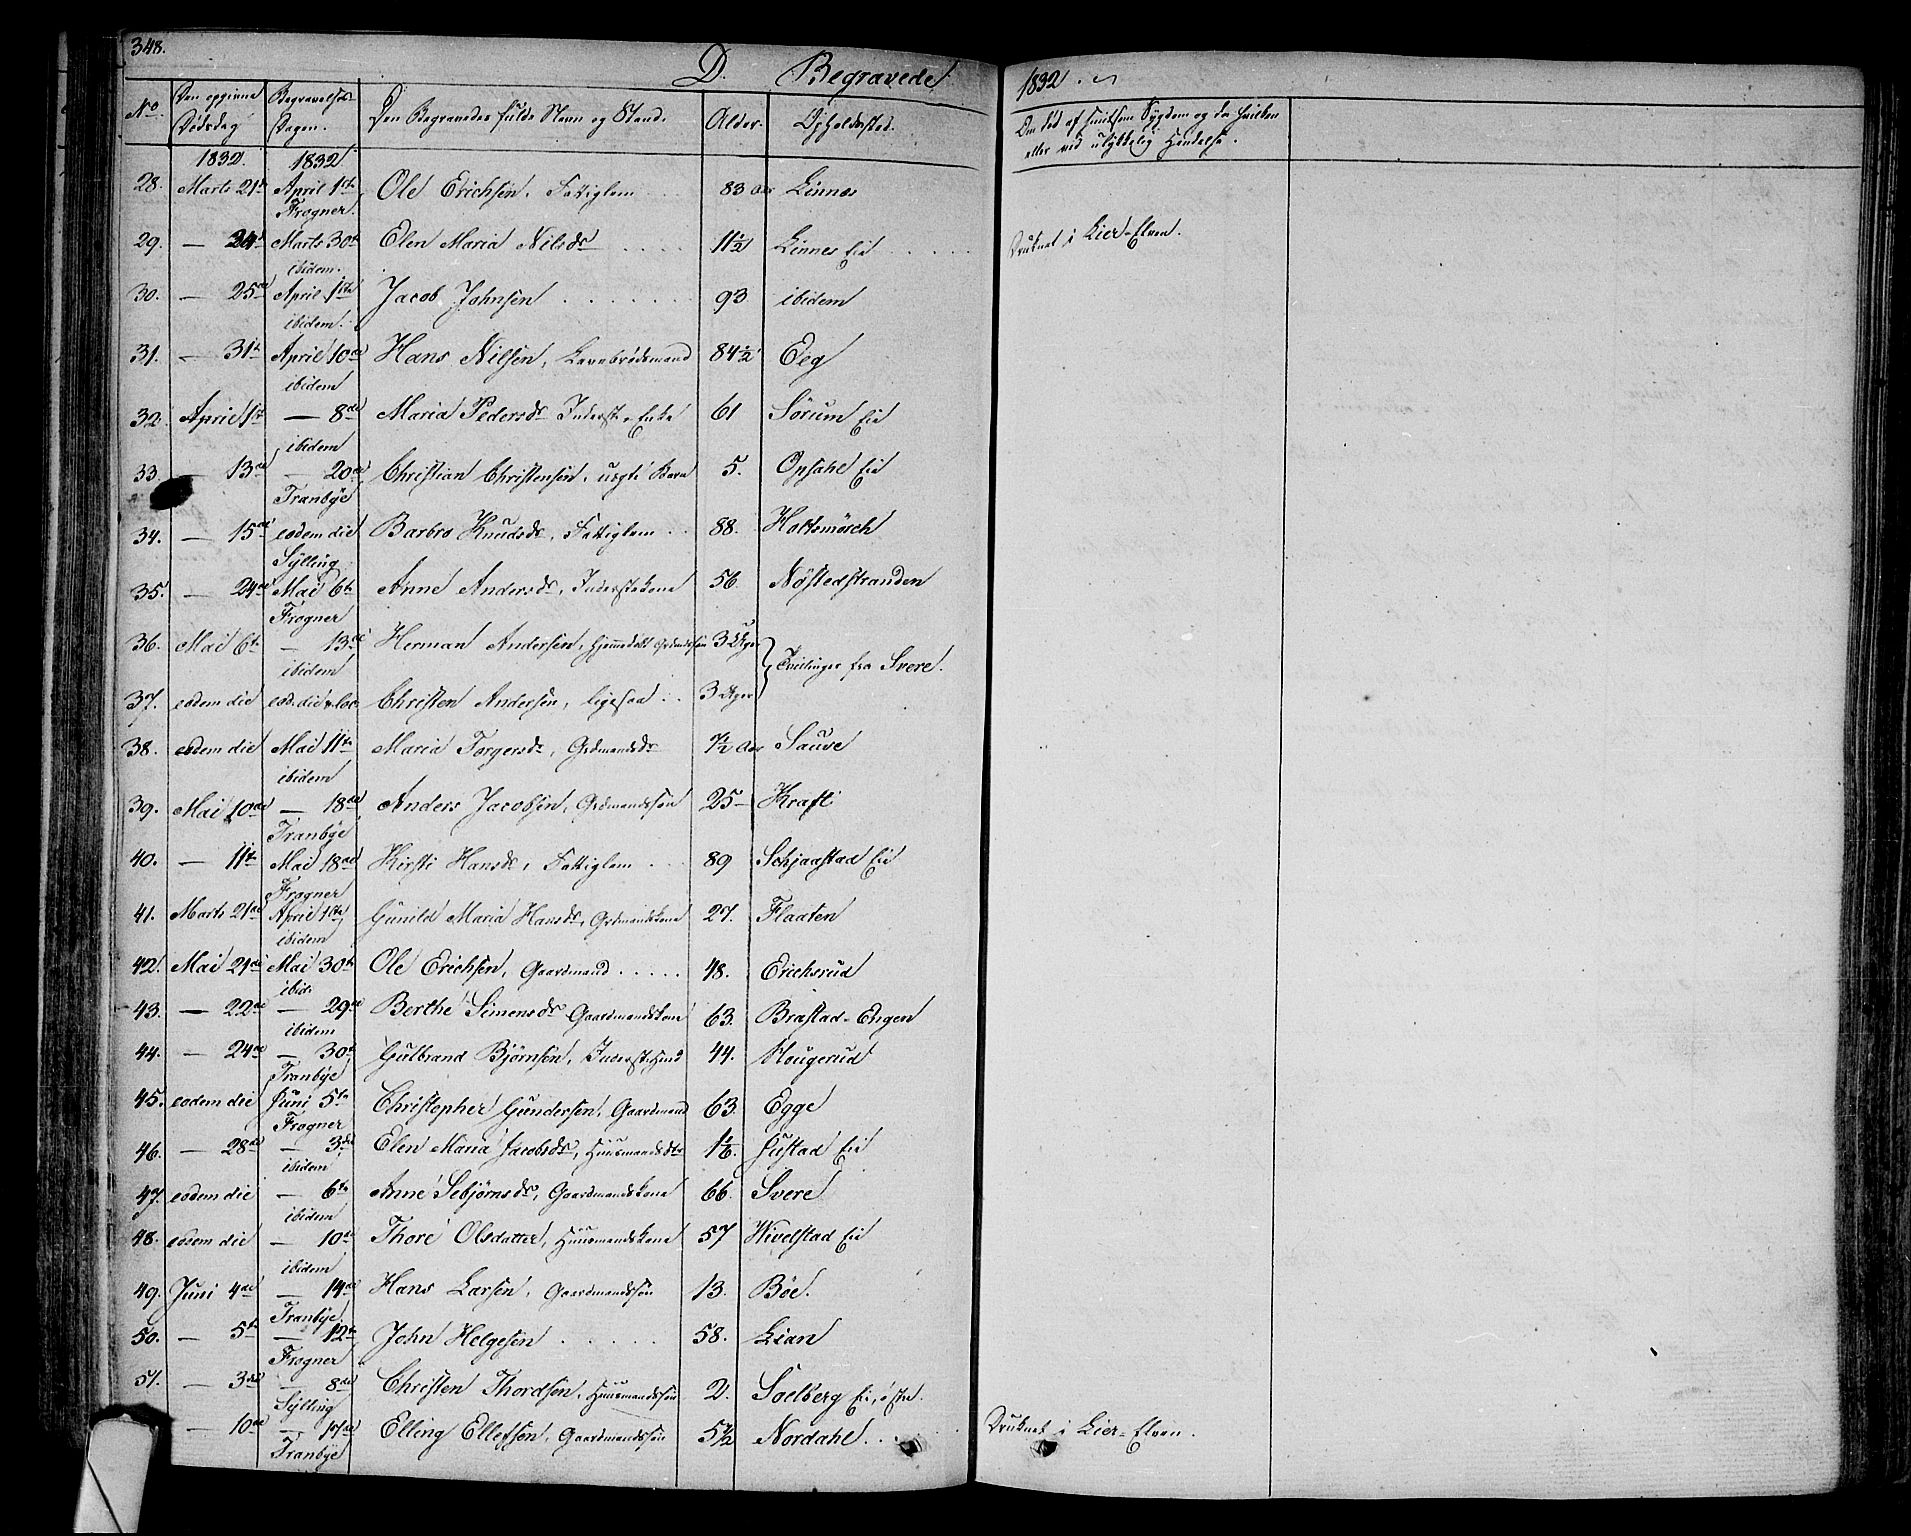 348.
D. Begravede
1832.
No. Den opgivne Dødsdag Begravelses Dagen. Den Begravedes fulde Navn og Stand. Alder. Opholdssted. Om død af smitsom Sygdom og da hvilken
eller ved ulykkelig Hændelse.
1832. 1832
28. Marts 21de April 1ste Ole Erichsen, Fattiglem 83 Aar Linnes
Frogner.
29. — 24de Marts 30te Elen Maria Nilsdr 11½ Linnes Eie Druknet i Lier-Elven.
ibidem.
30. — 25de April 1ste Jacob Johnsen 93 ibidem
ibidem.
31. — 31te April 10de Hans Nilsen, Levebrødsmand 84½ Eeg
ibidem
32. April 1ste — 8de Maria Pedersdr Inderst-Enke 61 Sørum Eie
ibidem
33. — 13de — 20de Christian Christensen, uægte Barn 5. Opsahl Eie
Tranbye
34. — 15de eodem die Barbro Knudsdr, Fattiglem 88. Holtsmörch
Sylling
35. — 24de Mai 6te Anne Andersdr, Inderstekone 56 Nøstedstranden
Frogner
36. Mai 6te — 13de Herman Andersen, Grdmdssøn 3 Uger
ibidem Tvillinger fra Svere.
37. eodem die eod. die & loc. Christen Andersen, ligesaa 3 Uger
38. eodem die Mai 11te Maria Torgersdr, Grdmandsdr ½ Aar Sauve
ibidem
39. Mai 10de — 18de Anders Jacobsen, Grdmandssøn 25 Kraft
Tranbye
40. — 11te Mai 18de Kirsti Hansdr, Fattiglem 89 Schjaastad Eie
Frogner
41. Marts 21de April 1ste Gunild Maria Hansdr, Grdmandskone 27. Flaaten
ibidem
42. Mai 21de Mai 30te Ole Erichsen, Gaardmand 48. Erichsrud
ibid.
43. — 22de — 29de Berthe Simensdr Gaardmandskone 63. Brastad-Engen
ibidem
44. — 24de — 30te Gulbrand Bjørnsen, Inderst 44. Hougerud
Tranbye
45. eodem die Juni 5te Christopher Gundersen, Gaardmand 63 Egge
Frogner
46. — 28de — 3die Elen Maria Jacobsdr, Huusmandsdr Gustad Eie
ibidem
47. eodem die — 6te Anne Sebjørnsdr, Gaardmandskone 66. Svere
ibidem
48. eodem die — 10de Thore Olsdatter, Huusmandskone 57 Wivelstad Eie
ibidem
49. Juni 4de — 14de Hans Larsen, Gaardmandssøn 13. Böe.
Tranbye
50. — 5te — 12te John Helgesen 58. Lian
Frogner
51. — 3die — 8de Christen Thordsen, Huusmandssøn 2. Soelberg Eie, østre.
Sylling
— 10de — 17de Elling Ellefsen, Gaardmandssøn 5½ Nordahl Druknet i Lier-Elven.
Tranbye